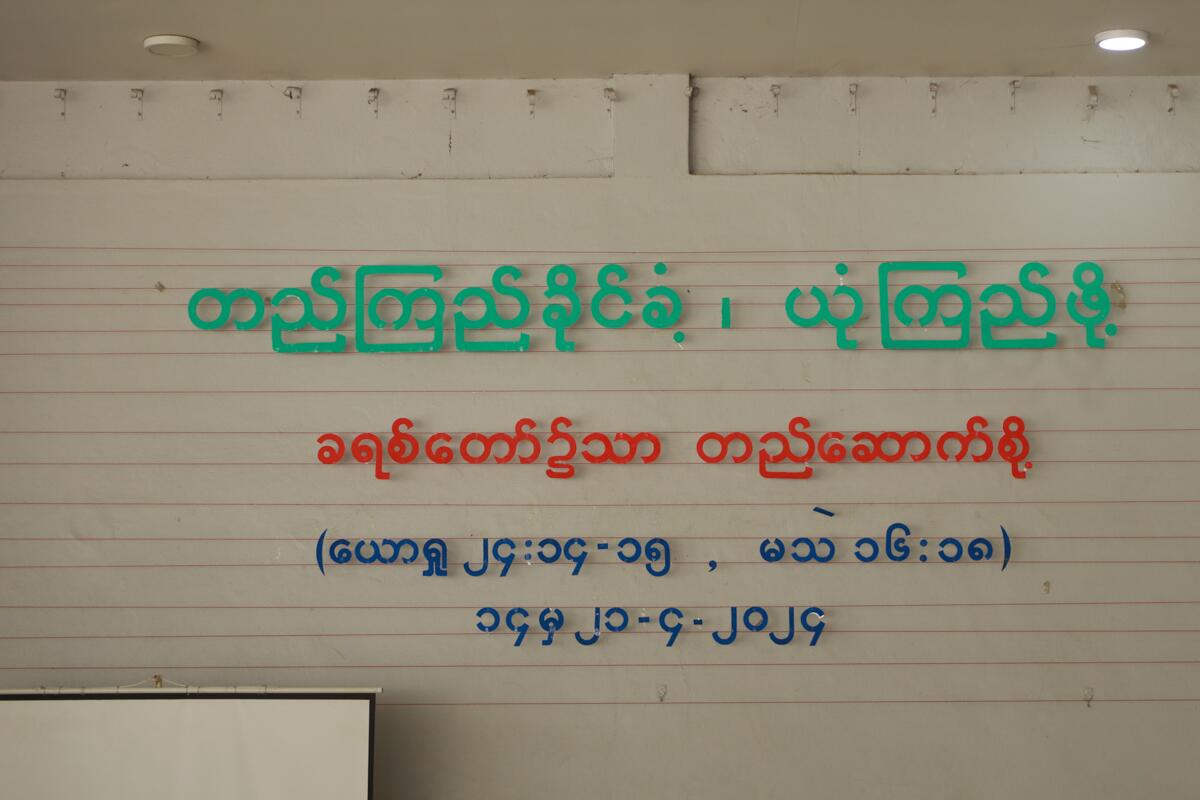 တည်ကြည်ခိုင်ခံ့၊ ယုံကြည်ဖို့
ခရစ်တော်၌သာ တည်ဆောက်စို့
(ယောရှု ၂၄:၁၄-၁၅ , မဿဲ ၁၆:၁၈)
၁၄မှ၂၁-၄-၂၀၂၄